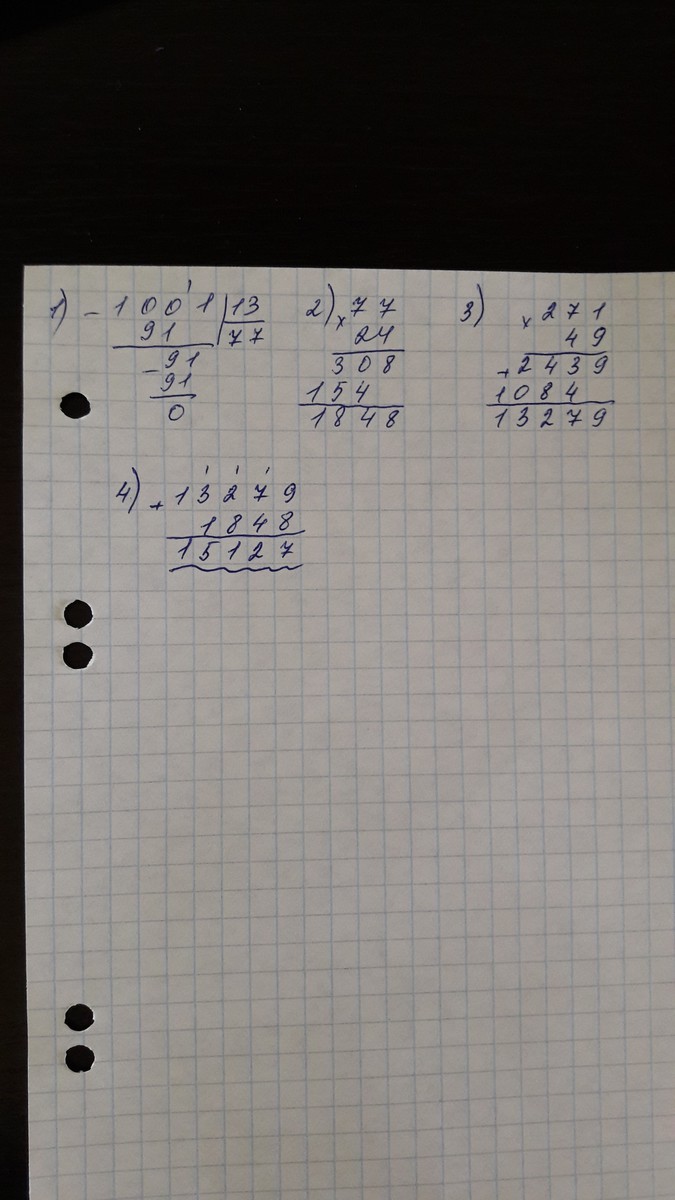 1) - 1001 | 13
91 | 77
- 91
91
0
2) x 77
24
308
154
1848
3) x 271
49
+ 2439
1084
13279
4) + 13279
1848
15127